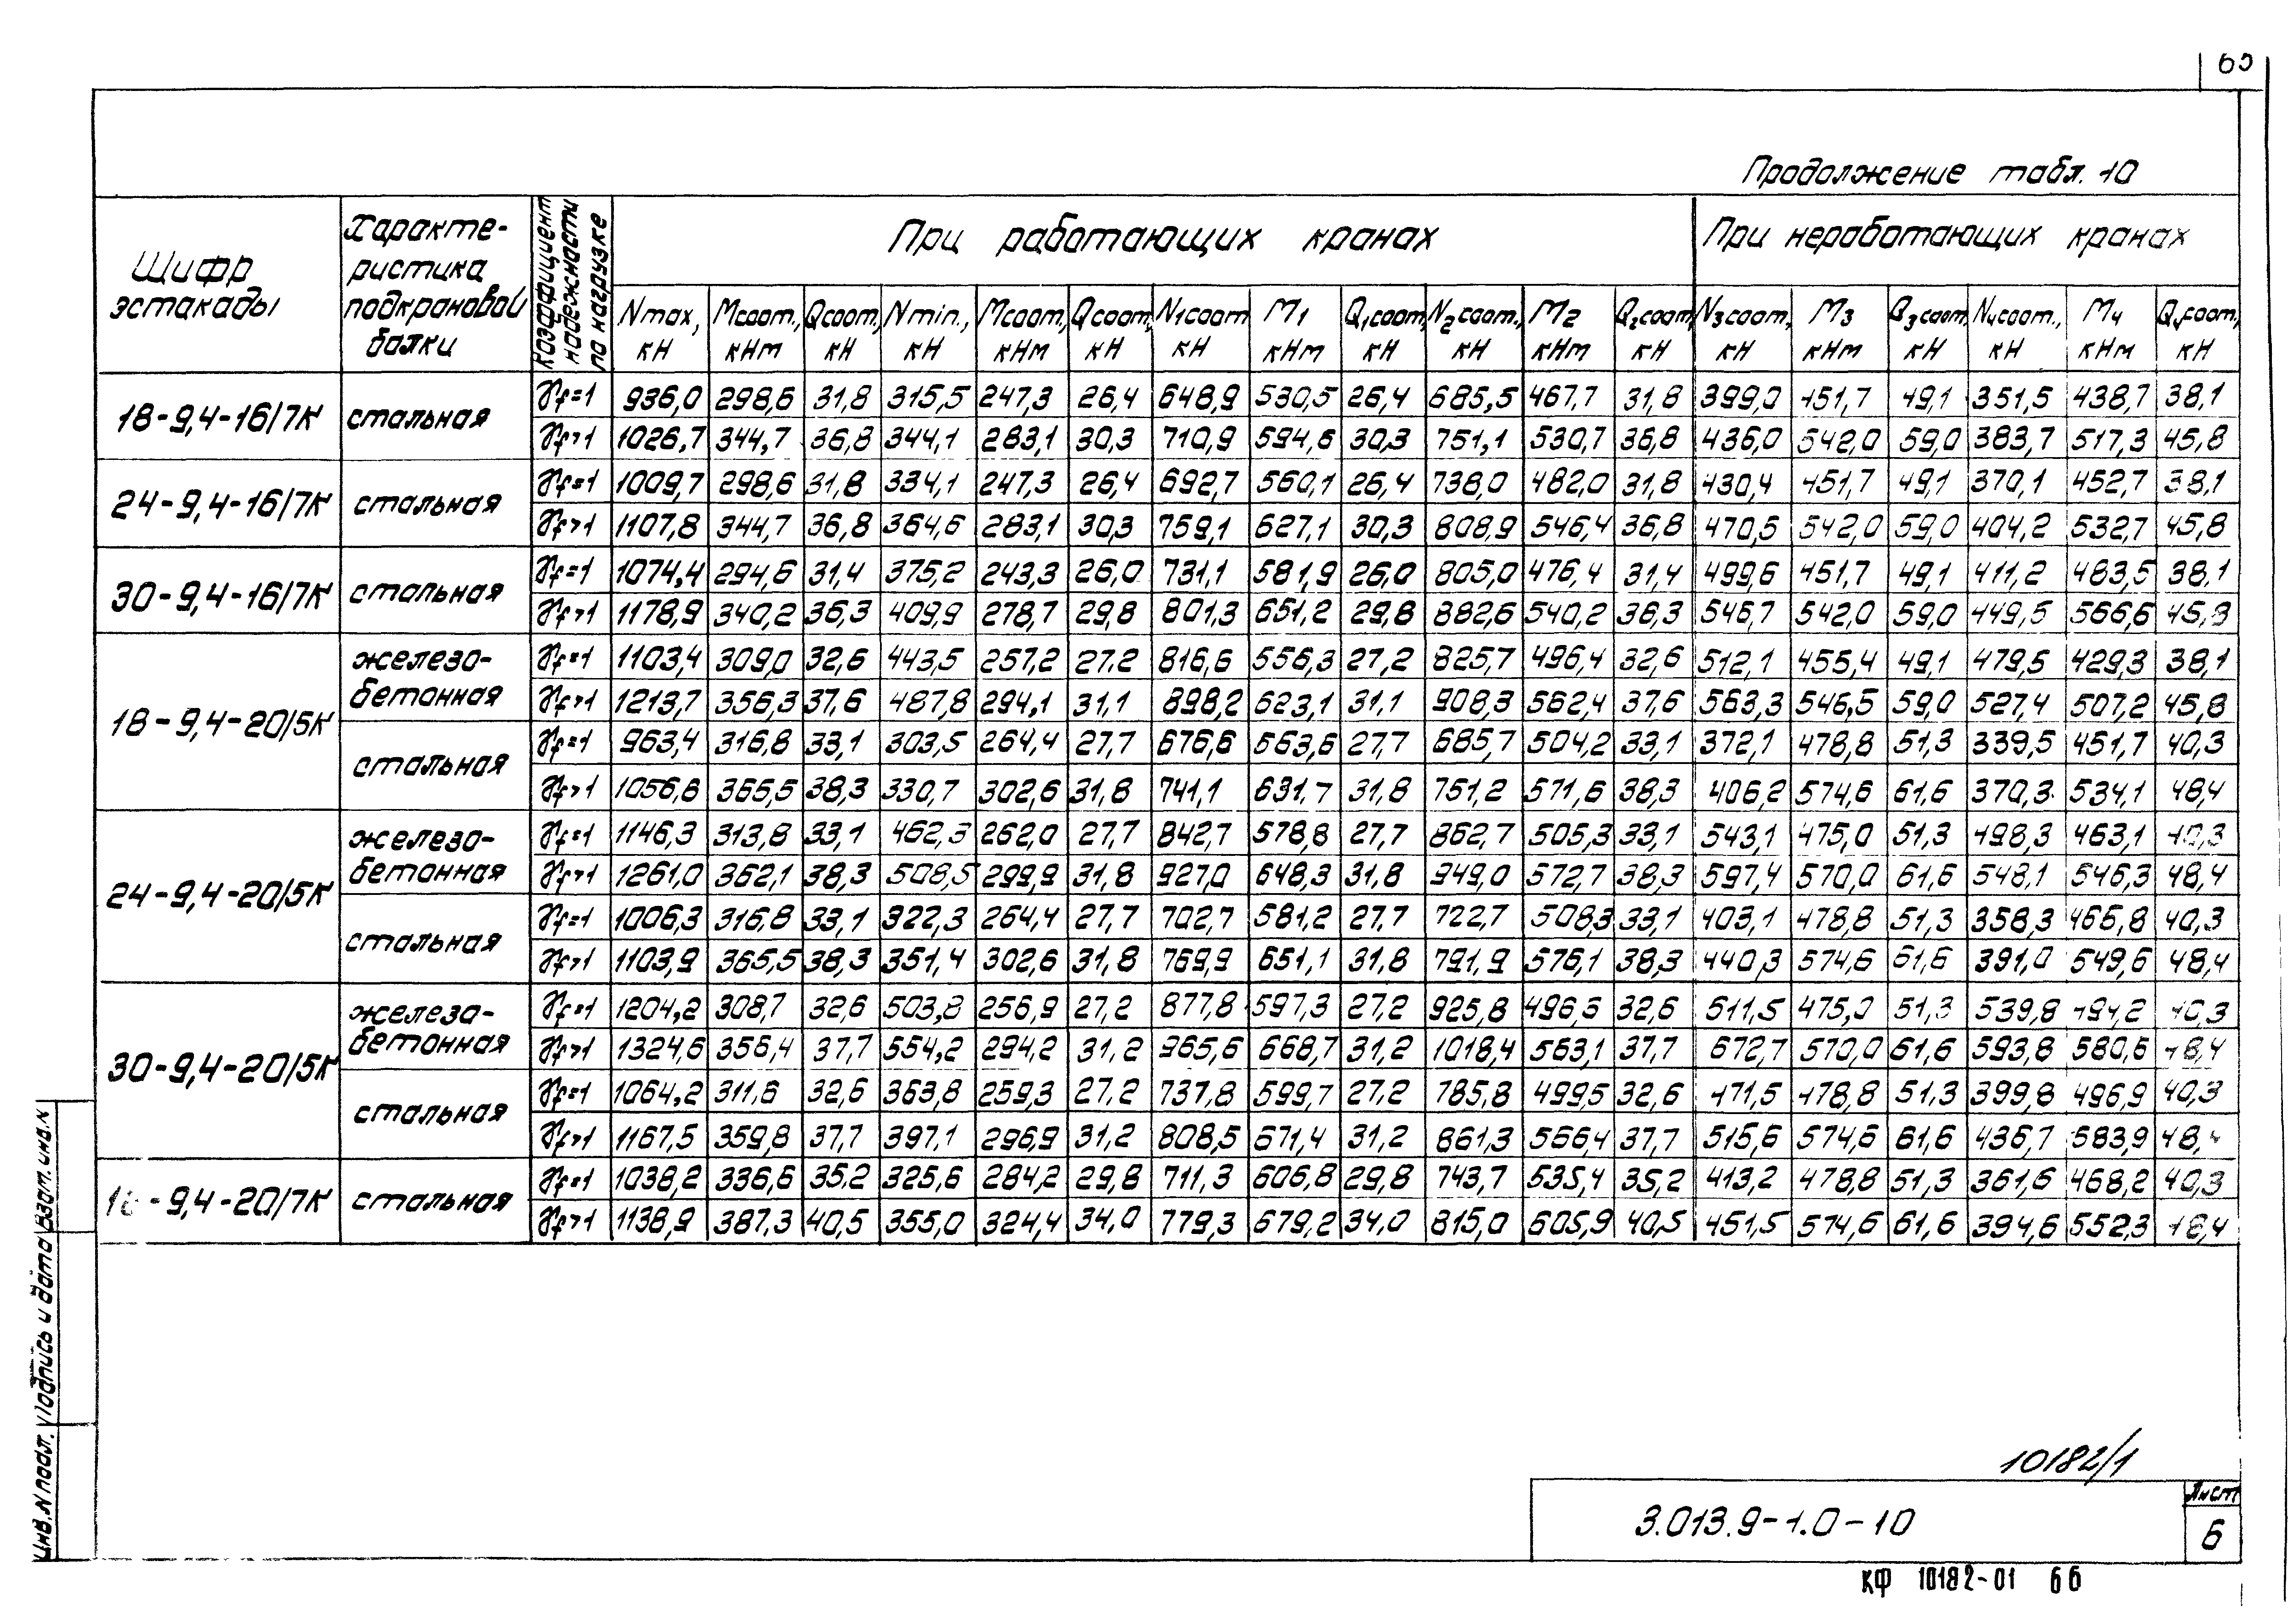 Продолжение табл. 10
Шифр эстакады
Характеристика подкрановой балки
Коэффициент надежности по нагрузке
При работающих кранах
При неработающих кранах
Nmax, кН Mсоот., кНм Qсоот., кН Nmin., кН Mсоот., кНм Qсоот., кН N1соот кН M1 кНм Q1соот, кН N2соот., кН M2 кНм Q2соот, кН N3соот., кН M3 кНм Q3соот, кН N4соот., кН M4 кНм Q4соот, кН
18-9,4-16/7К стальная γf=1 936,0 298,6 31,8 315,5 247,3 26,4 648,9 530,5 26,4 685,5 467,7 31,8 399,0 451,7 49,1 351,5 438,7 38,1
γf>1 1026,7 344,7 36,8 344,1 283,1 30,3 710,9 594,6 30,3 751,1 530,7 36,8 436,0 542,0 59,0 383,7 517,3 45,8
24-9,4-16/7К стальная γf=1 1009,7 298,6 31,8 334,1 247,3 26,4 692,7 560,1 26,4 738,0 482,0 31,8 430,4 451,7 49,1 370,1 452,7 38,1
γf>1 1107,8 344,7 36,8 364,6 283,1 30,3 759,1 627,1 30,3 808,9 546,4 36,8 470,5 542,0 59,0 404,2 532,7 45,8
30-9,4-16/7К стальная γf=1 1074,4 294,6 31,4 375,2 243,3 26,0 731,1 581,9 26,0 805,0 476,4 31,4 499,6 451,7 49,1 411,2 483,5 38,1
γf>1 1178,9 340,2 36,3 409,9 278,7 29,8 801,3 651,2 29,8 882,6 540,2 36,3 546,7 542,0 59,0 449,5 566,6 45,8
18-9,4-20/5К железобетонная γf=1 1103,4 309,0 32,6 443,5 257,2 27,2 816,6 556,3 27,2 825,7 496,4 32,6 512,1 455,4 49,1 479,5 429,3 38,1
γf>1 1213,7 356,3 37,6 487,8 294,1 31,1 898,2 623,1 31,1 908,3 562,4 37,6 563,3 546,5 59,0 527,4 507,2 45,8
стальная γf=1 963,4 316,8 33,1 303,5 264,4 27,7 676,6 563,6 27,7 685,7 504,2 33,1 372,1 478,8 51,3 339,5 451,7 40,3
γf>1 1056,8 365,5 38,3 330,7 302,6 31,8 741,1 631,7 31,8 751,2 571,6 38,3 406,2 574,6 61,6 370,3 534,1 48,4
24-9,4-20/5К железобетонная γf=1 1146,3 313,8 33,1 462,3 262,0 27,7 842,7 578,8 27,7 862,7 505,3 33,1 543,1 475,0 51,3 498,3 463,1 40,3
γf>1 1261,0 362,1 38,3 508,5 299,9 31,8 927,0 648,3 31,8 949,0 572,7 38,3 597,4 570,0 61,6 548,1 546,3 48,4
стальная γf=1 1006,3 316,8 33,1 322,3 264,4 27,7 702,7 581,2 27,7 722,7 508,3 33,1 403,1 478,8 51,3 358,3 465,8 40,3
γf>1 1103,9 365,5 38,3 351,4 302,6 31,8 769,9 651,1 31,8 791,9 576,1 38,3 440,3 574,6 61,6 391,0 549,6 48,4
30-9,4-20/5К железобетонная γf=1 1204,2 308,7 32,6 503,8 256,9 27,2 877,8 597,3 27,2 925,8 496,5 32,6 611,5 475,0 51,3 539,8 494,2 40,3
γf>1 1324,6 356,4 37,7 554,2 294,2 31,2 965,6 668,7 31,2 1018,4 563,1 37,7 672,7 570,0 61,6 593,8 580,6 48,4
стальная γf=1 1064,2 311,6 32,6 363,8 259,3 27,2 737,8 599,7 27,2 785,8 499,5 32,6 471,5 478,8 51,3 399,8 496,9 40,3
γf>1 1167,5 359,8 37,7 397,1 296,9 31,2 808,5 671,4 31,2 861,3 566,4 37,7 515,6 574,6 61,6 436,7 583,9 48,4
-9,4-20/7К стальная γf=1 1038,2 336,6 35,2 325,6 284,2 29,8 711,3 606,8 29,8 743,7 535,4 35,2 413,2 478,8 51,3 361,6 468,2 40,3
γf>1 1138,9 387,3 40,5 355,0 324,4 34,0 779,3 679,2 34,0 815,0 605,9 40,5 451,5 574,6 61,6 394,6 552,3 48,4
Инв.N подл. Подпись и дата Взам. инв.N
10182/1
3.013.9-1.0-10
Лист
6
КФ 10182-01 66